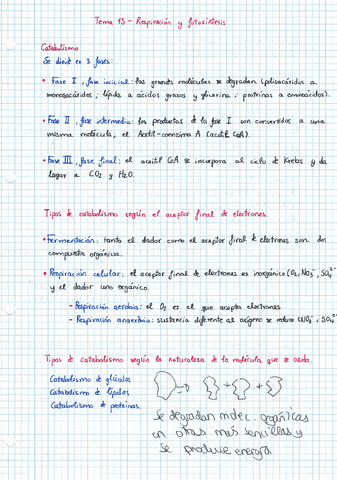 Tema 13 - Respiración y fotosíntesis
Catabolismo
Se divide en 3 fases:
• Fase I, fase inicial: las grandes moléculas se degradan (polisacáridos a
monosacáridos, lípidos a ácidos grasos y glicerina; proteínas a aminoácidos).
• Fase II, fase intermedia: los productos de la fase I son convertidos a una
misma molécula, el Acetil-coenzima A (acetil CoA).
• Fase III, fase final: el acetil CoA se incorpora al ciclo de Krebs y da
lugar a CO2 y H2O.
Tipos de catabolismo según el aceptor final de electrones.
• Fermentación: tanto el dador como el aceptor final de electrones son dos
compuestos orgánicos.
• Respiración celular: el aceptor final de electrones es inorgánico (O2, NO3-, SO4 2-
y el dador uno orgánico.
- Respiración aerobia: el O2 es el que acepta electrones.
- Respiración anaerobia: sustancia diferente al oxígeno se reduce (NO3-, SO4 2-
Tipos de catabolismo según la naturaleza de la molécula que se oxida.
Catabolismo de glúcidos
Catabolismo de lípidos
Catabolismo de proteínas
Se degradan molec. orgánicas
en otras más sencillas y
se produce energía